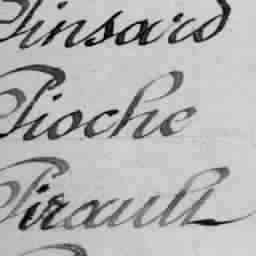 Pinsard
Pioche
Pirault